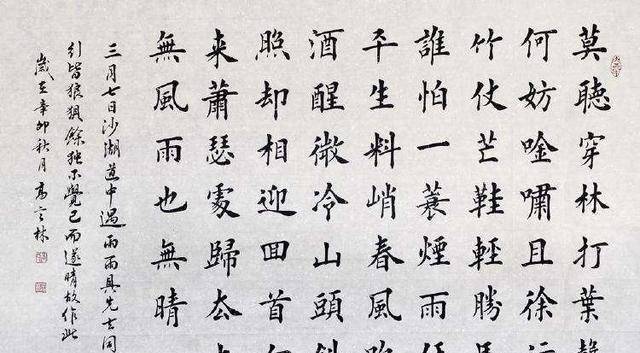 莫聽穿林打葉
何妨唫嘯且徐
竹仗芒鞋輕勝
誰怕一蓑煙雨
平生料峭春風
酒醒微冷山頭
照却相迎回首
来蕭瑟處歸去
無風雨也無晴
三月七日沙湖道中遇雨雨具先去同
引皆狼狽餘獨不覺已而遂晴故作此
歲在辛卯秋月高林